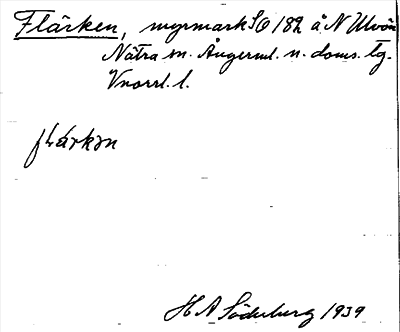 Flärken, myrmark SO 182 å N Ulvön
Nätra sn. Ångerml. n. doms. tg.
Vnorrl. l.
flárkən
H A Söderberg 1939